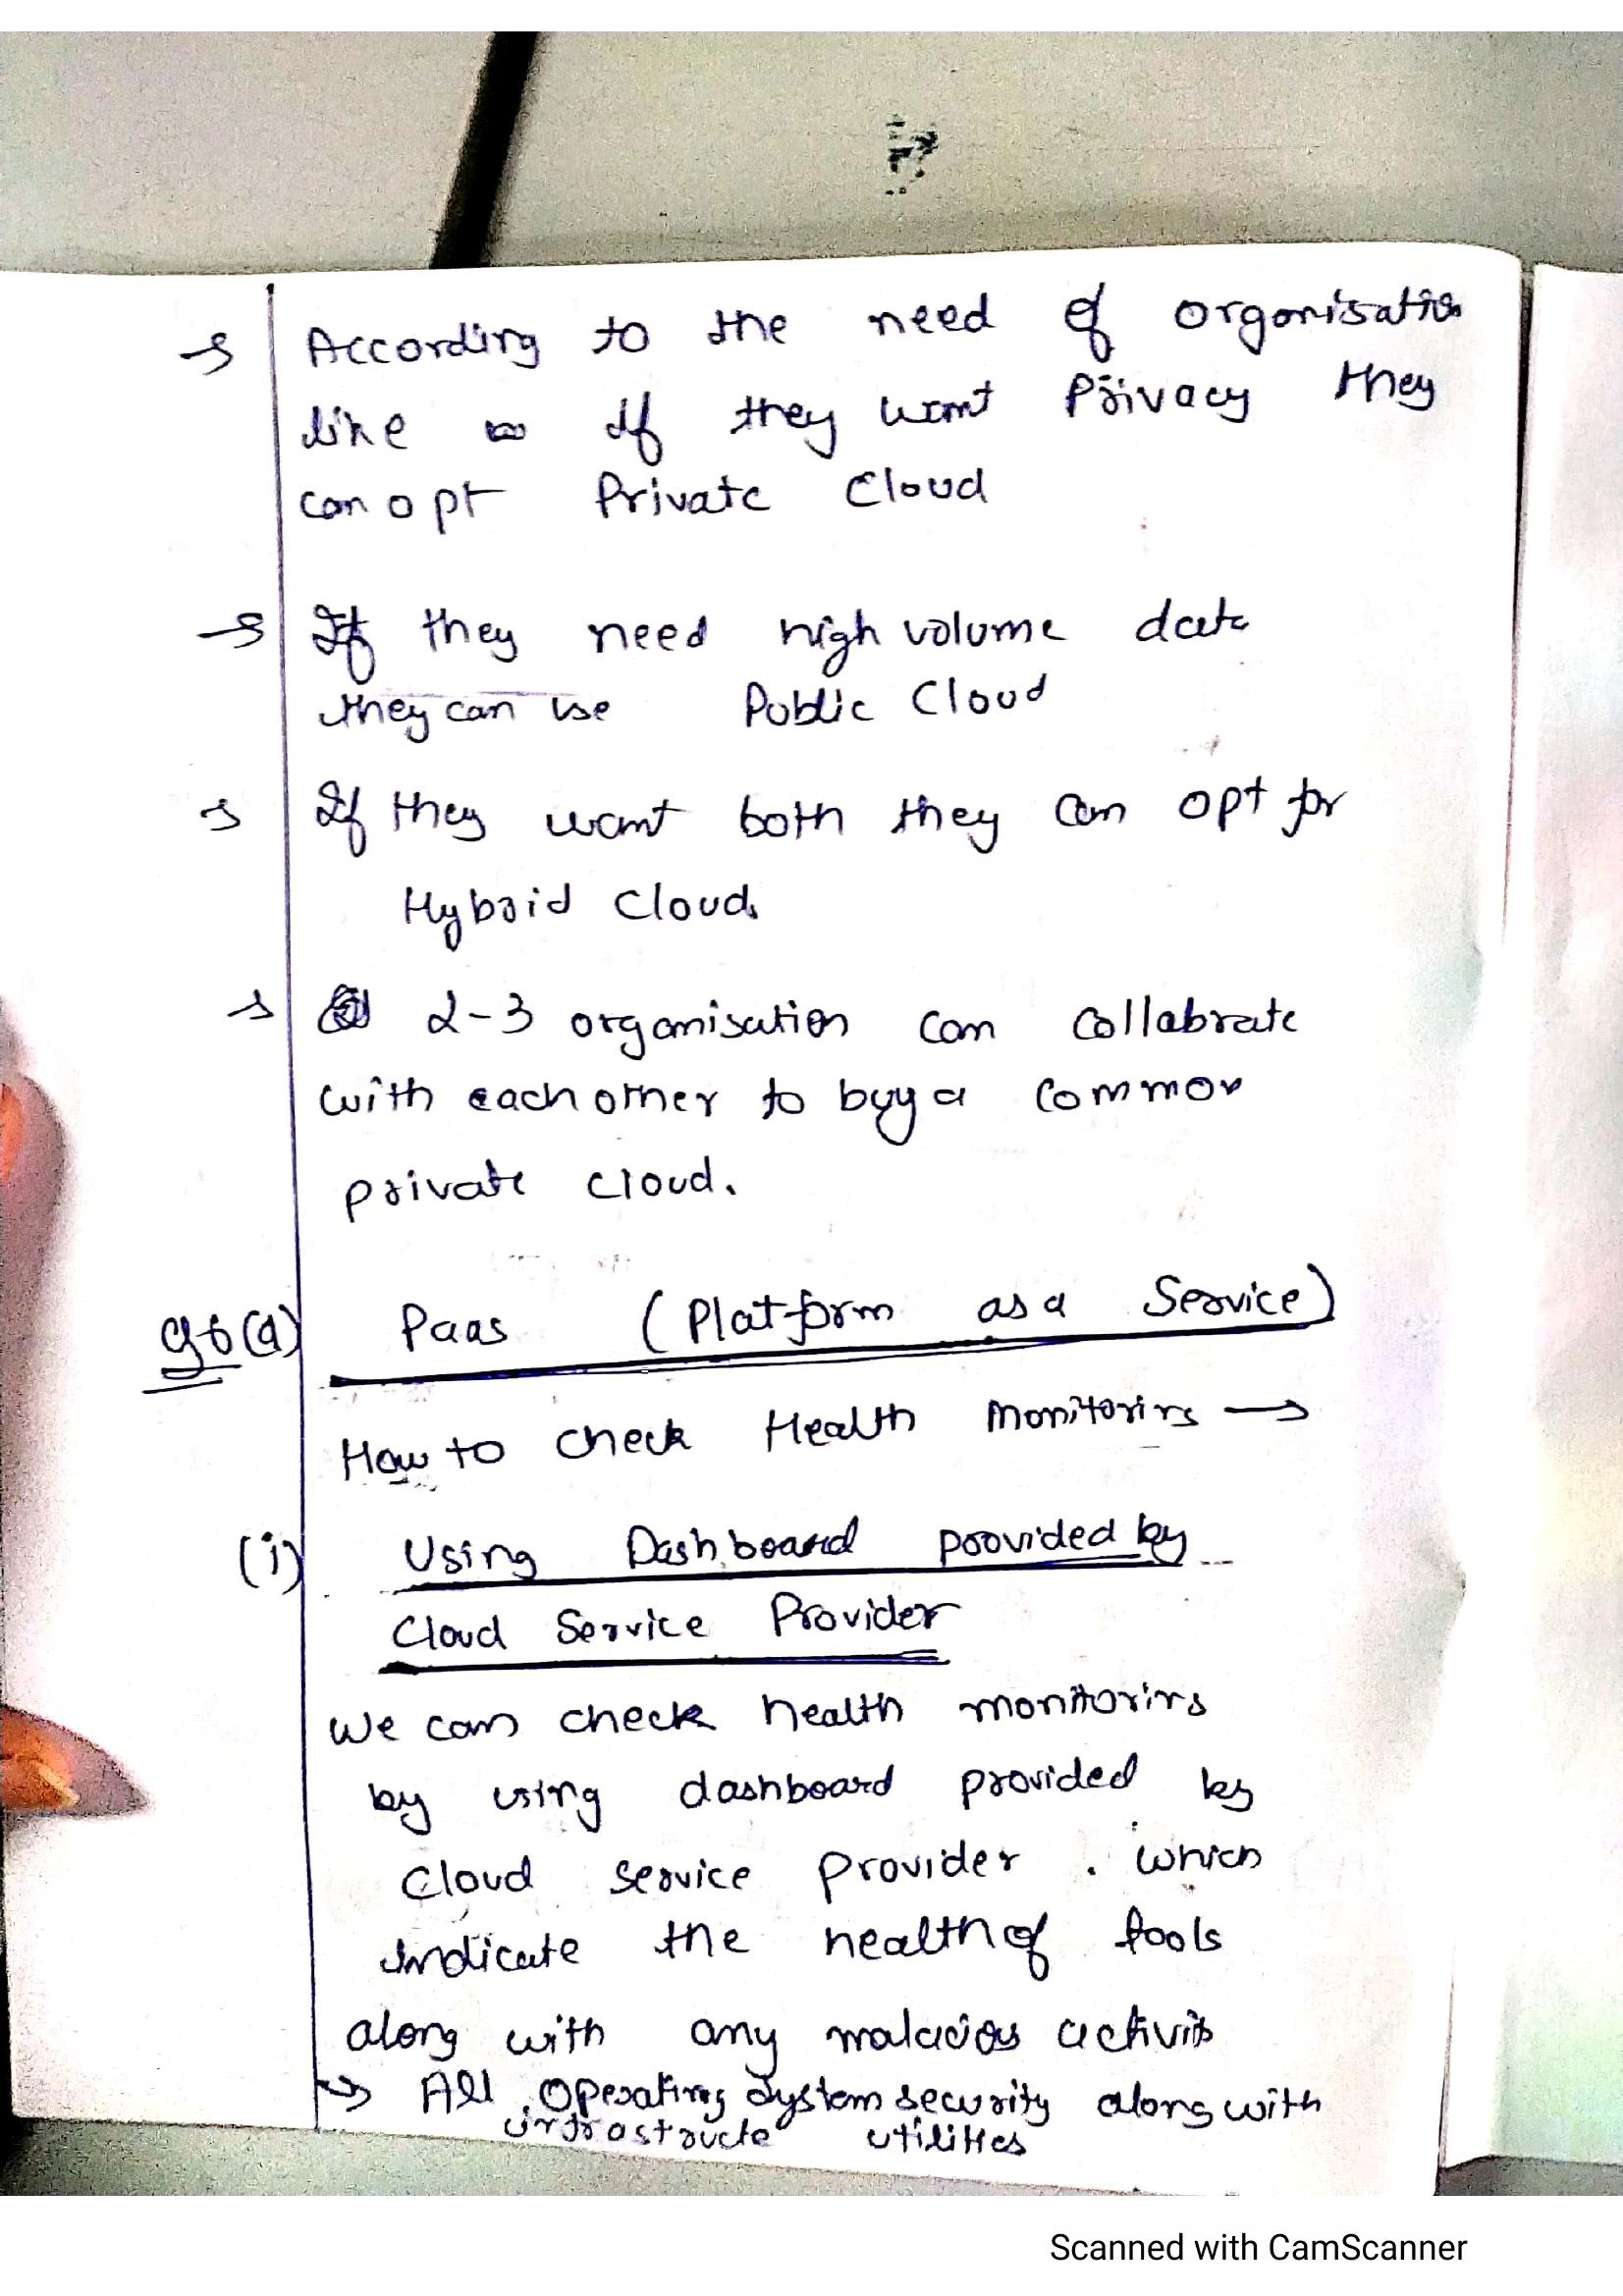 → According to the need of organisation
like if they want Privacy they
can opt Private Cloud
→ If they need high volume data
they can use Public Cloud
→ If they want both they can opt for
Hybrid Cloud.
→ 2-3 organisation can collabrate
with each other to buy a common
private cloud.
96(a) Paas (Platform as a Service)
How to check Health Monitoring →
(i) Using Dashboard provided by
Cloud Service Provider
We can check health monitoring
by using dashboard provided by
cloud service provider. which
indicate the health of tools
along with any malacious activity
→ All operating system security along with
infrastructe utilities
Scanned with CamScanner